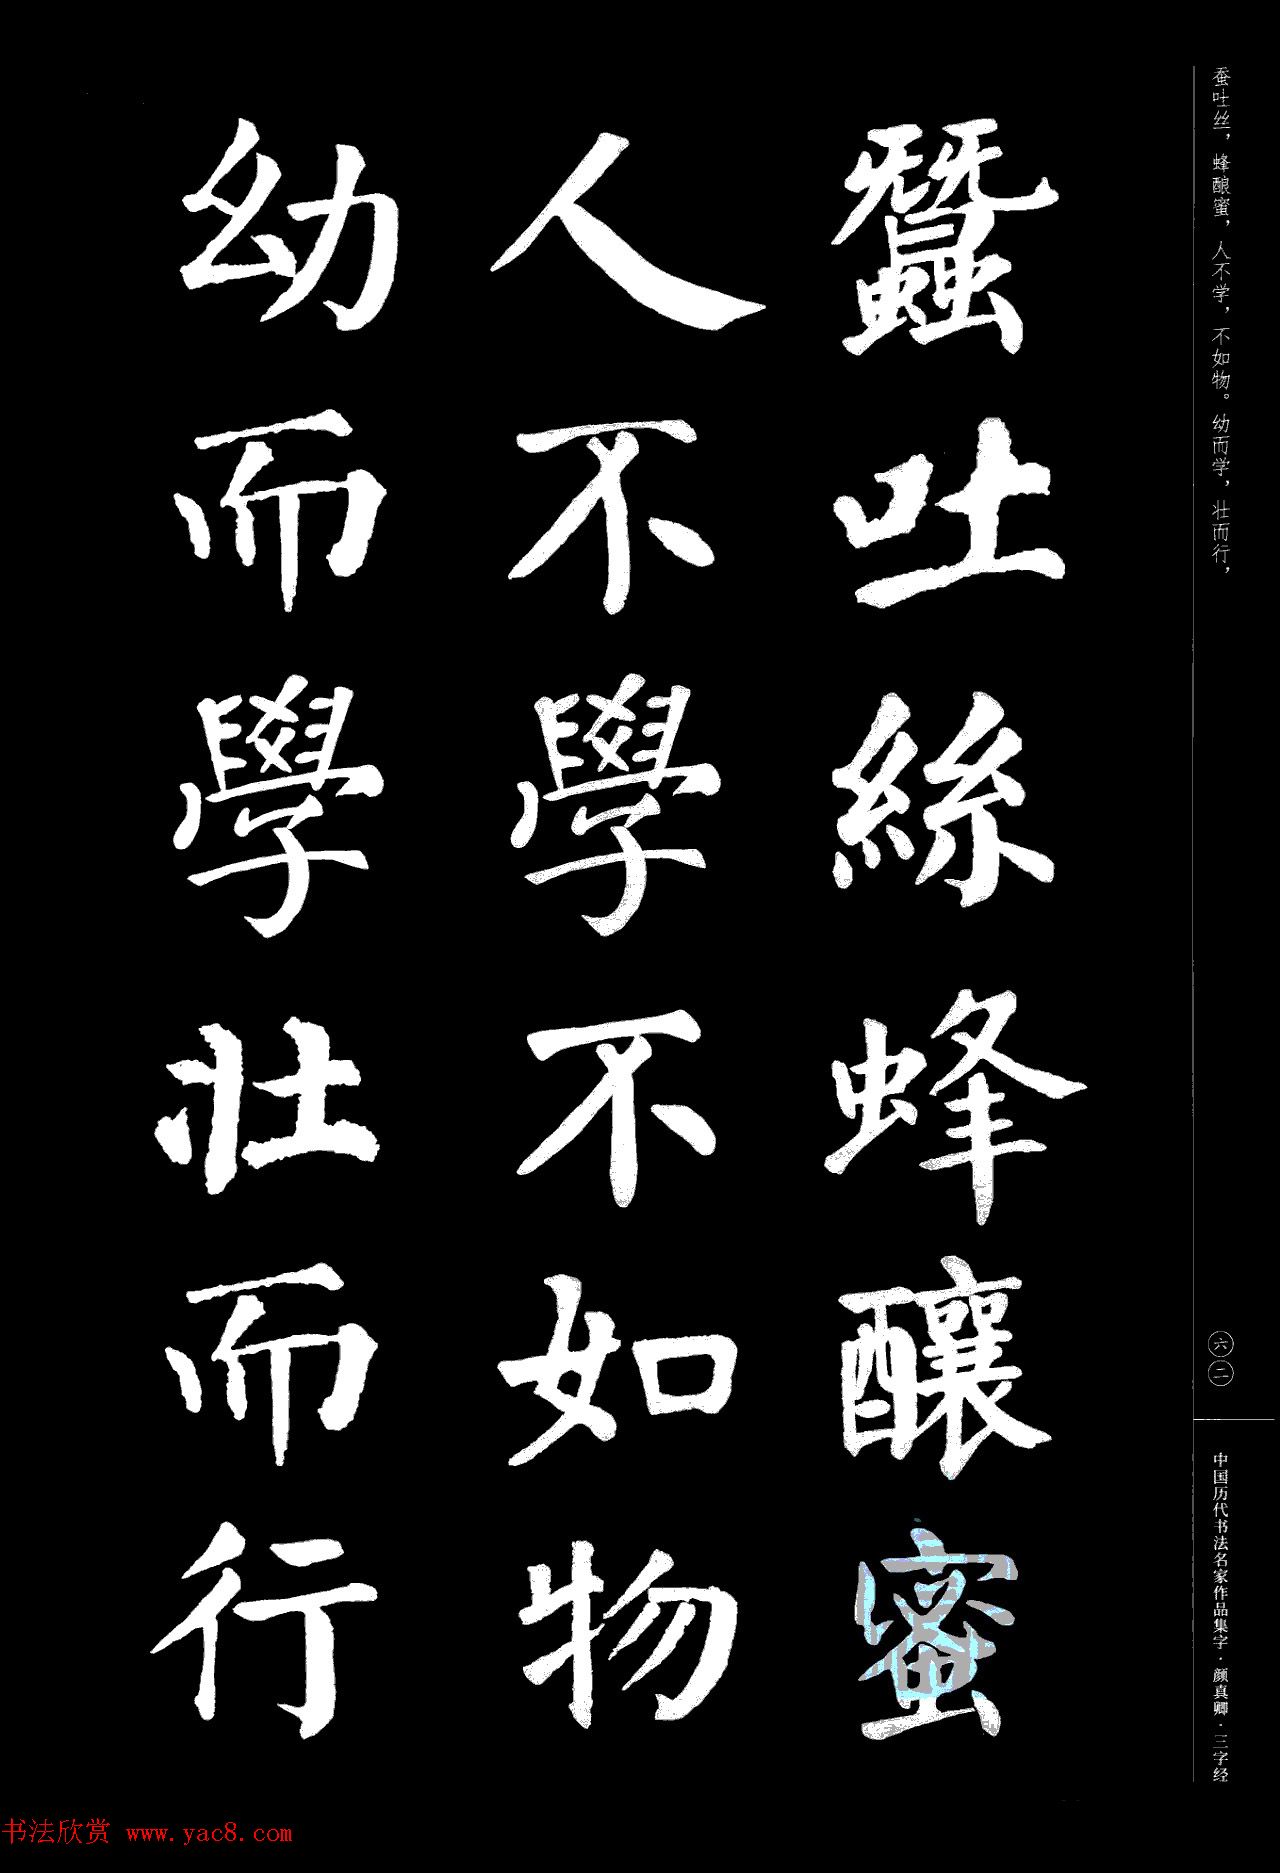 蚕吐丝，蜂酿蜜，人不学，不如物。幼而学，壮而行，
蠶吐絲蜂釀蜜
人不學不如物
幼而學壯而行
六二
中国历代书法名家作品集字·颜真卿·三字经
书法欣赏 www.yac8.com